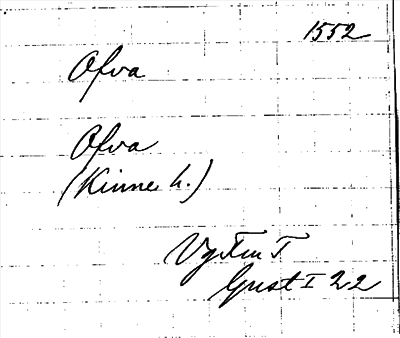 1552
Ofva
Ofva
(Kinne h.)
Vg Tm T
Gust I 22